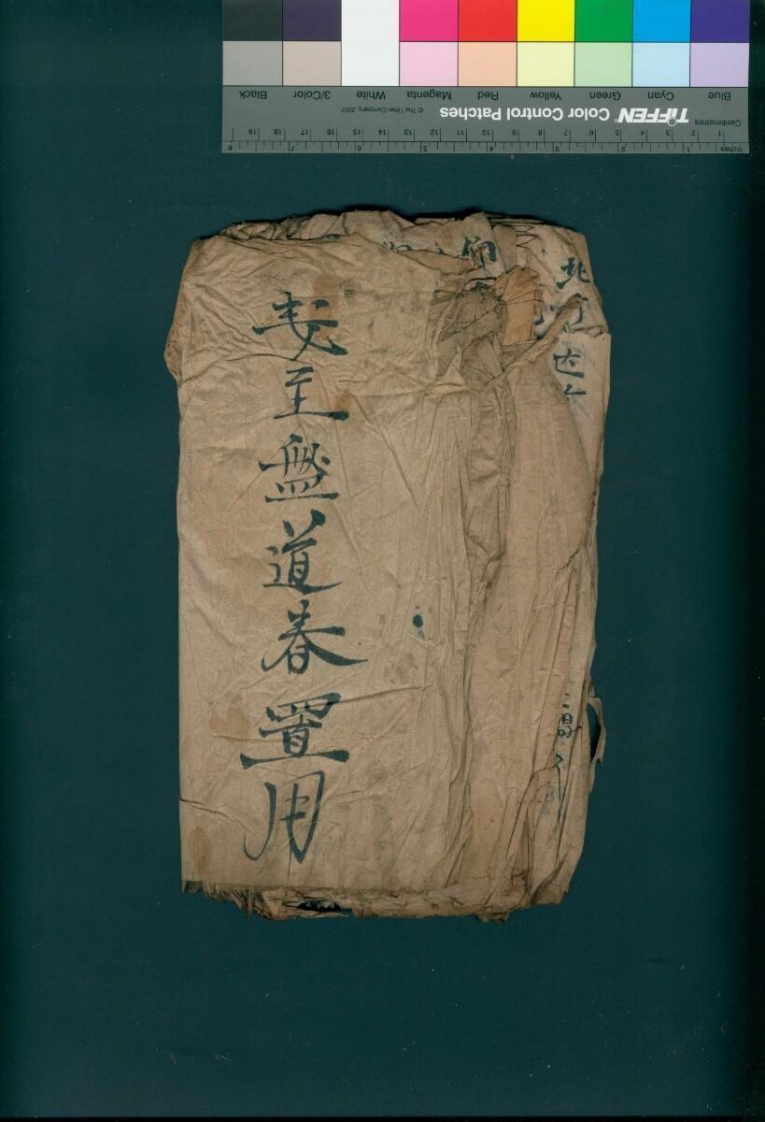 契主盤道春置用
Black 3/Color White Magenta Red Yellow Green Cyan Blue
© The Tiffen Company, 2007
TIFFEN Color Control Patches
Centimetres
19 18 17 16 15 14 13 12 11 10 9 8 7 6 5 4 3 2 1
8 7 6 5 4 3 2 1 Inches